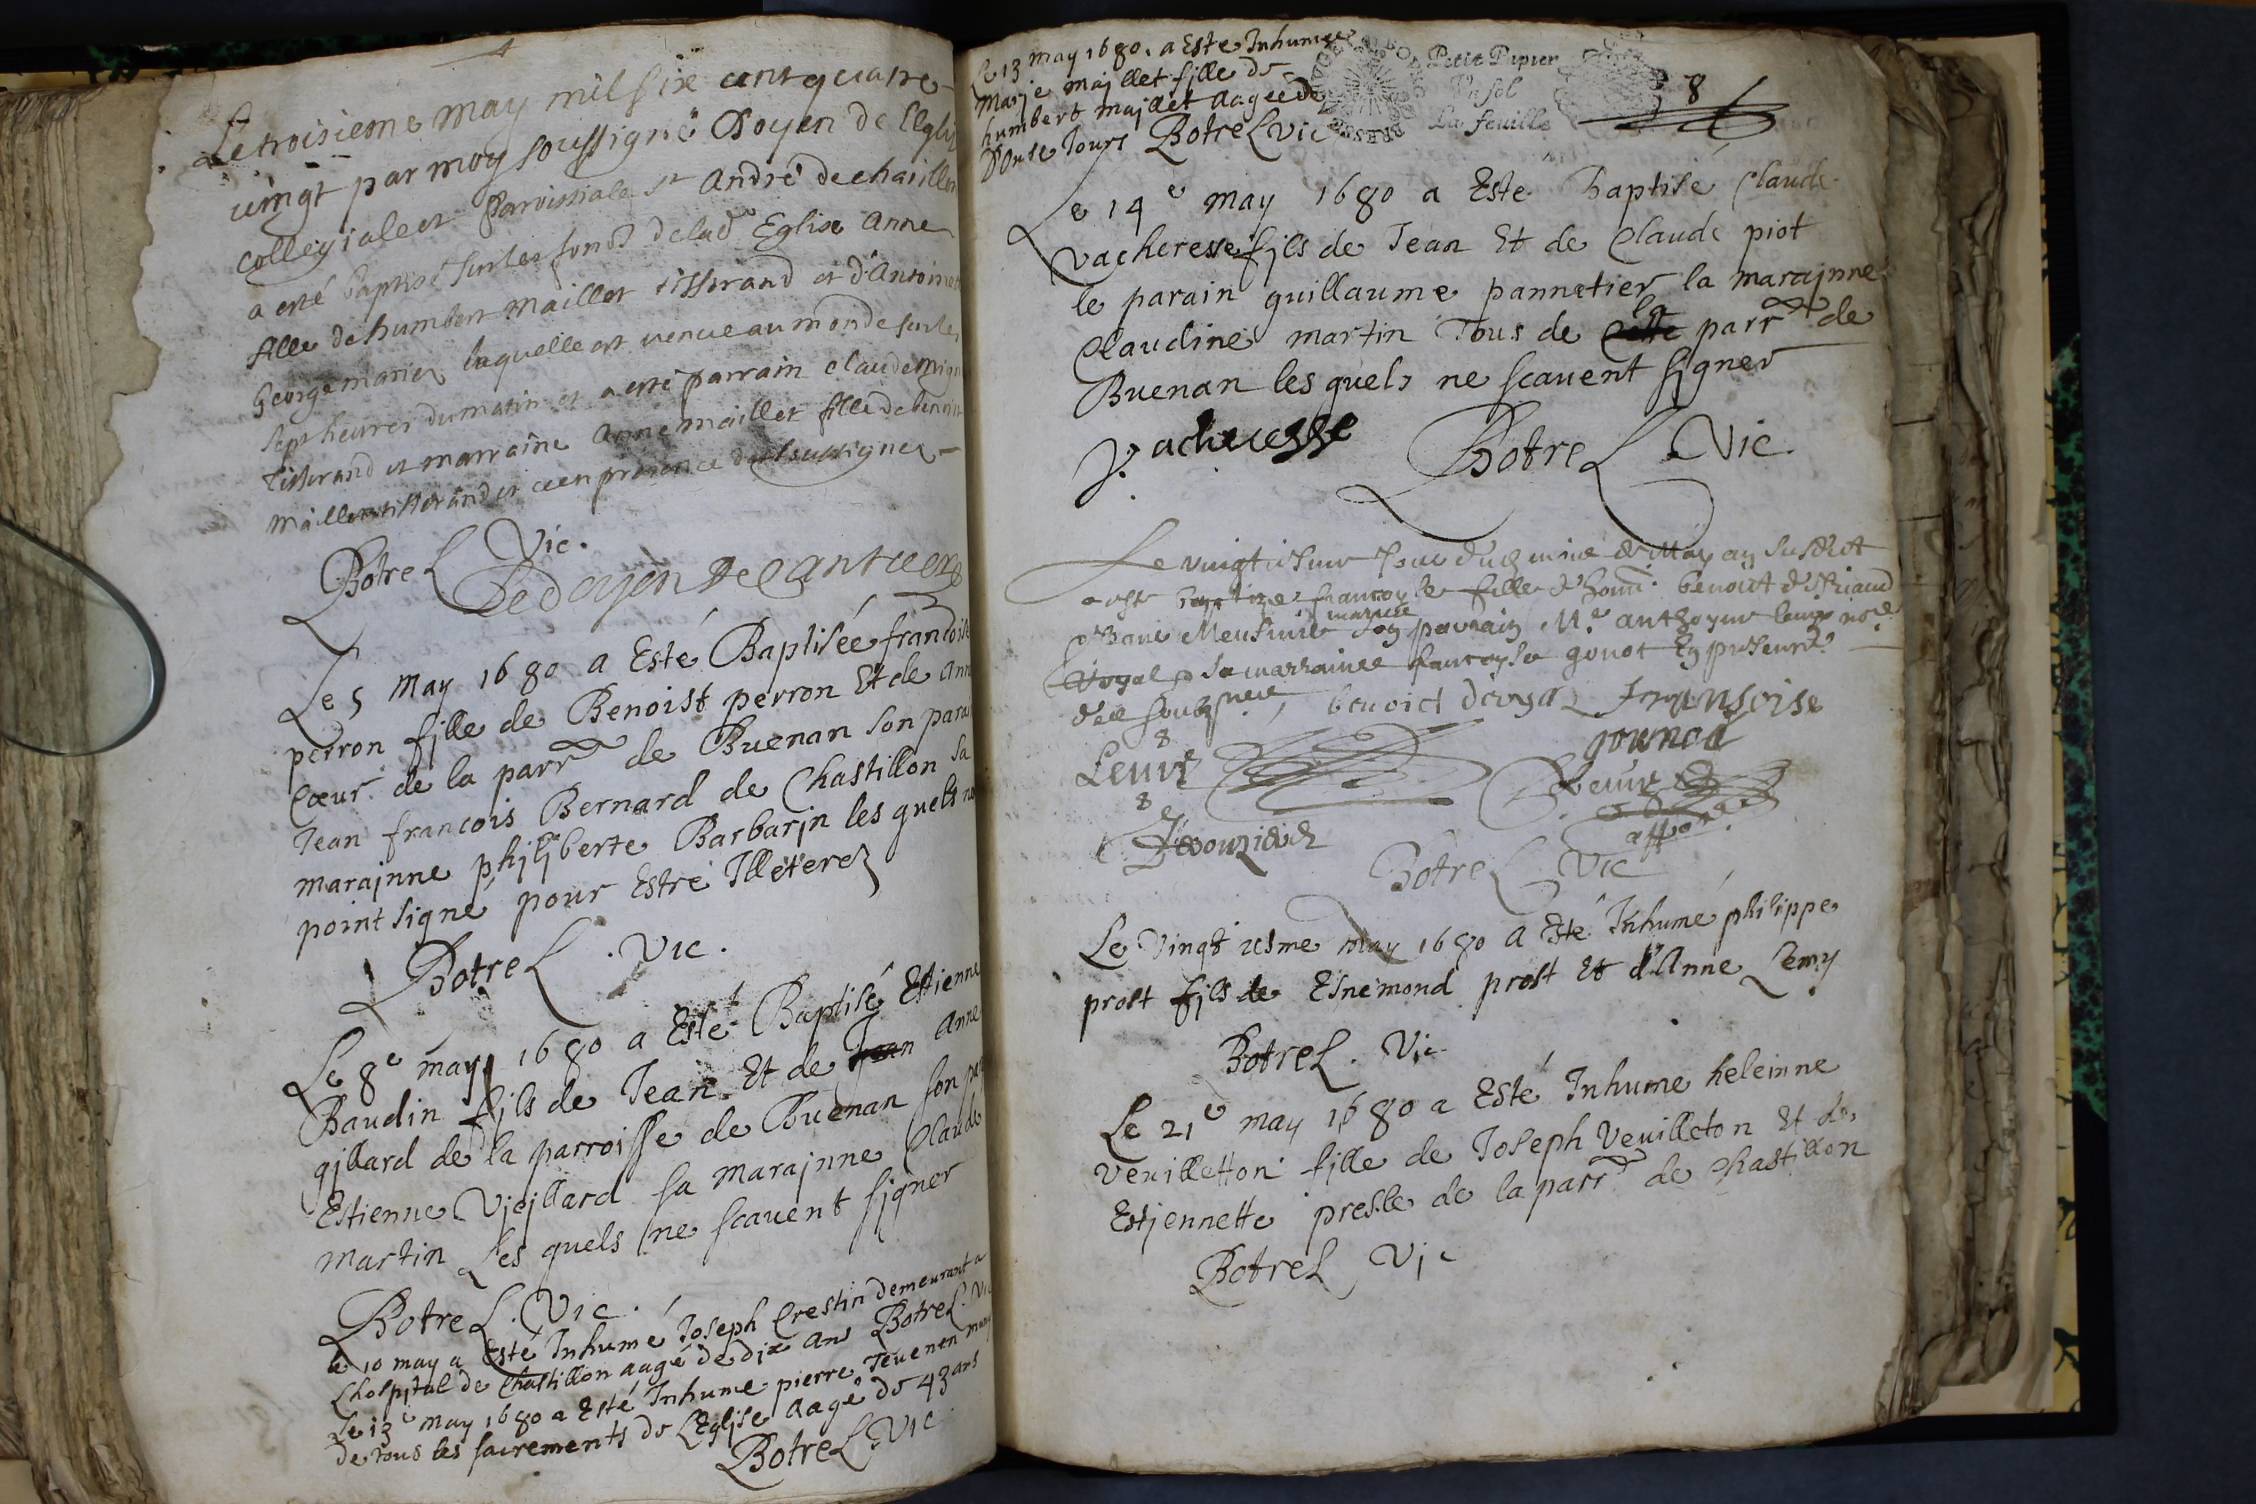 Le troisieme may mil six cent quatre
vingt par moy soussigné Doyen de l'Egli
collegiale et parroissiale St André de chaillon
a esté baptisé sur les fonds de lad Eglise Anne
fille de humbert Maillet tisserand et d'Antoinet
George mariez laquelle est venue au monde sur les
sept heures du matin et a esté parrain claude
tisserand et marraine Anne maillet fille de benoist
maillet tisserand et ce en presence des soussignez
Botrel Vic.
Le doyen De
Le 5 May 1680 a Esté Baptisée francoise
perron fille de Benoist perron Et de Ann
Cœur de la parr de Buenan son parai
Jean francois Bernard de Chastillon sa
marajnne philjberte Barbarjn les quels n
point signé pour Estre Illeterez
Botrel . Vic .
Le 8e may 1680 a Esté Baptisé Estienne
Baudin fils de Jean Et de Jean Anne
gjllard de la parroisse de Buenan son pa
Estienne Vjejllard sa marajnne Claude
martin Les quels ne scavent signer
Botrel . Vic .
le 10 may a Esté Inhumé Joseph Crestin demeurant a
Lhospital de Chastillon aagé de dix ans Botrel . Vic
Le 13e may 1680 a Esté Inhumé pierre Tevenen muny
de tous les sacrements de L'Eglise aagé de 43 ans
Botrel . Vic .
Le 13 may 1680. a Este Inhumee
Marje majllet fille de
humbert majllet aagée de
Douse Jours Botrel Vic
Petit Papier
Un sol
La feuille
8
Le 14e may 1680 a Esté Baptisé Claude
Vacheresse fils de Jean Et de Claude piot
le parain guillaume pannetier la marajnne
Claudine martin Tous de cette la parr de
Buenan les quels ne scavent signer
Vacheresse Botrel . Vic .
Le vingtiesme Jour du mois de May an susdict
a este baptizee francoyse fille d' benoict
son parrain Me anthoyne
sa marrainee francoyse gonot En presence
des soubz benoict fransoise
gounod
8
8
Botrel Vic
Le Vingt iesme may 1680 a Esté Inhumé philippe
prost fils de Esnemond prost Et d'Anne Lemy
Botrel . Vic
Le 21e may 1680 a Esté Inhumé heleinne
Veuilletton fille de Joseph Veuilleton Et de
Estjennette presle de la parr de Chastillon
Botrel Vic